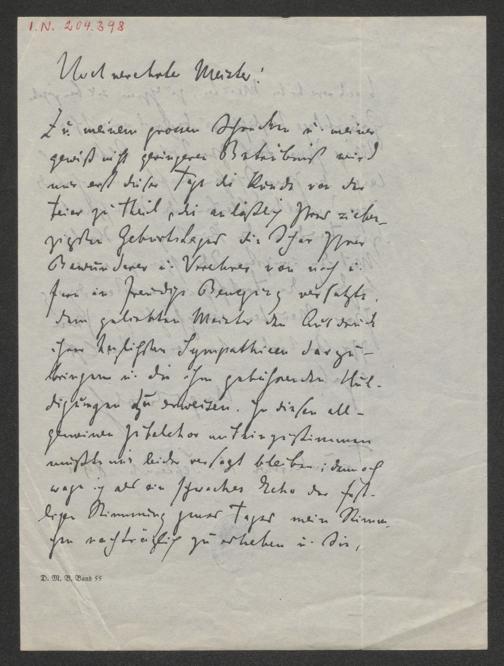 I.N. 204.398
Hochverehrter Meister!
Zu meinem grossen Schrecken u. meiner
gewiß nicht geringeren Betrübniß wird
mir erst dieser Tage die Kunde von der
Feier zu Theil, die anläßlich Ihres sieben-
zigsten Geburtstages die Schar Ihrer
Bewunderer u. Verehrer von nah u.
fern in freudige Bewegung versetzte,
dem geliebten Meister den Ausdruck
ihrer herzlichsten Sympathieen darzu-
bringen u. die ihm gebührenden Hul-
digungen zu erweisen. In diesen all-
gemeinen Jubelchor miteinzustimmen
mußte mir leider versagt bleiben; dennoch
wage ich als ein schwaches Echo der fest-
lichen Stimmung jener Tage meine Stimme
nachträglich zu erheben u. Sie,
D. M. B. Band 55